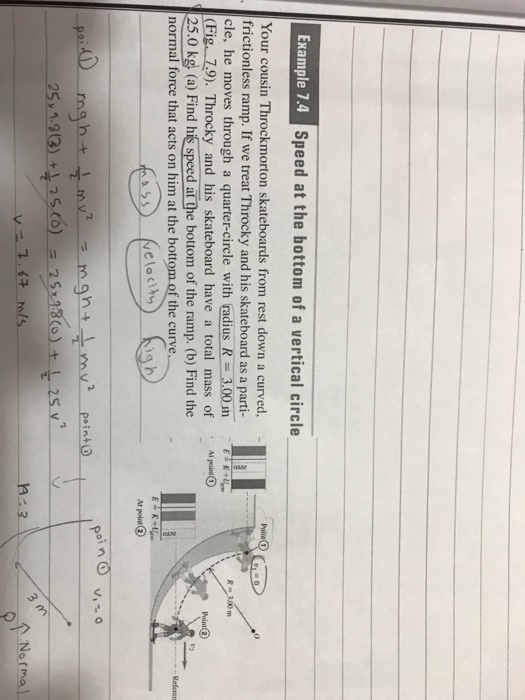 Example 7.4 Speed at the bottom of a vertical circle
Your cousin Throckmorton skateboards from rest down a curved,
frictionless ramp. If we treat Throcky and his skateboard as a parti-
cle, he moves through a quarter-circle with radius R = 3.00 m
(Fig. 7.9). Throcky and his skateboard have a total mass of
25.0 kg. (a) Find his speed at the bottom of the ramp. (b) Find the
normal force that acts on him at the bottom of the curve.
mass velocity high
Point ①
v₁ = 0
O
R = 3.00 m
E = K + U
At point ①
Point ②
v₂
E = K + U
At point ②
point ① mgh + 1/2 mv² = mgh + 1/2 mv² point ②
25×9.8(3) + 1/2 25(0) = 25×9.8(0) + 1/2 25 v²
v = 7.67 m/s
point ① v₁ = 0
h = 3
3 m
Normal